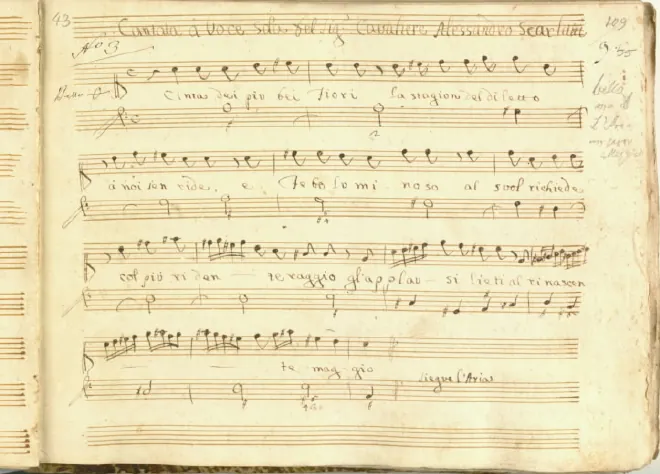 43 Cantata à Voce Sola del Sig.r Cavaliere Alessandro Scarlatti 109
No 3
Cinta dei più bei Fiori la stagion del diletto
à noi sen riede, e Febo lumi noso al suol richiede
col più riden - te raggio gl'applau - si lieti al rinascen
te mag - gio Siegue l'Aria